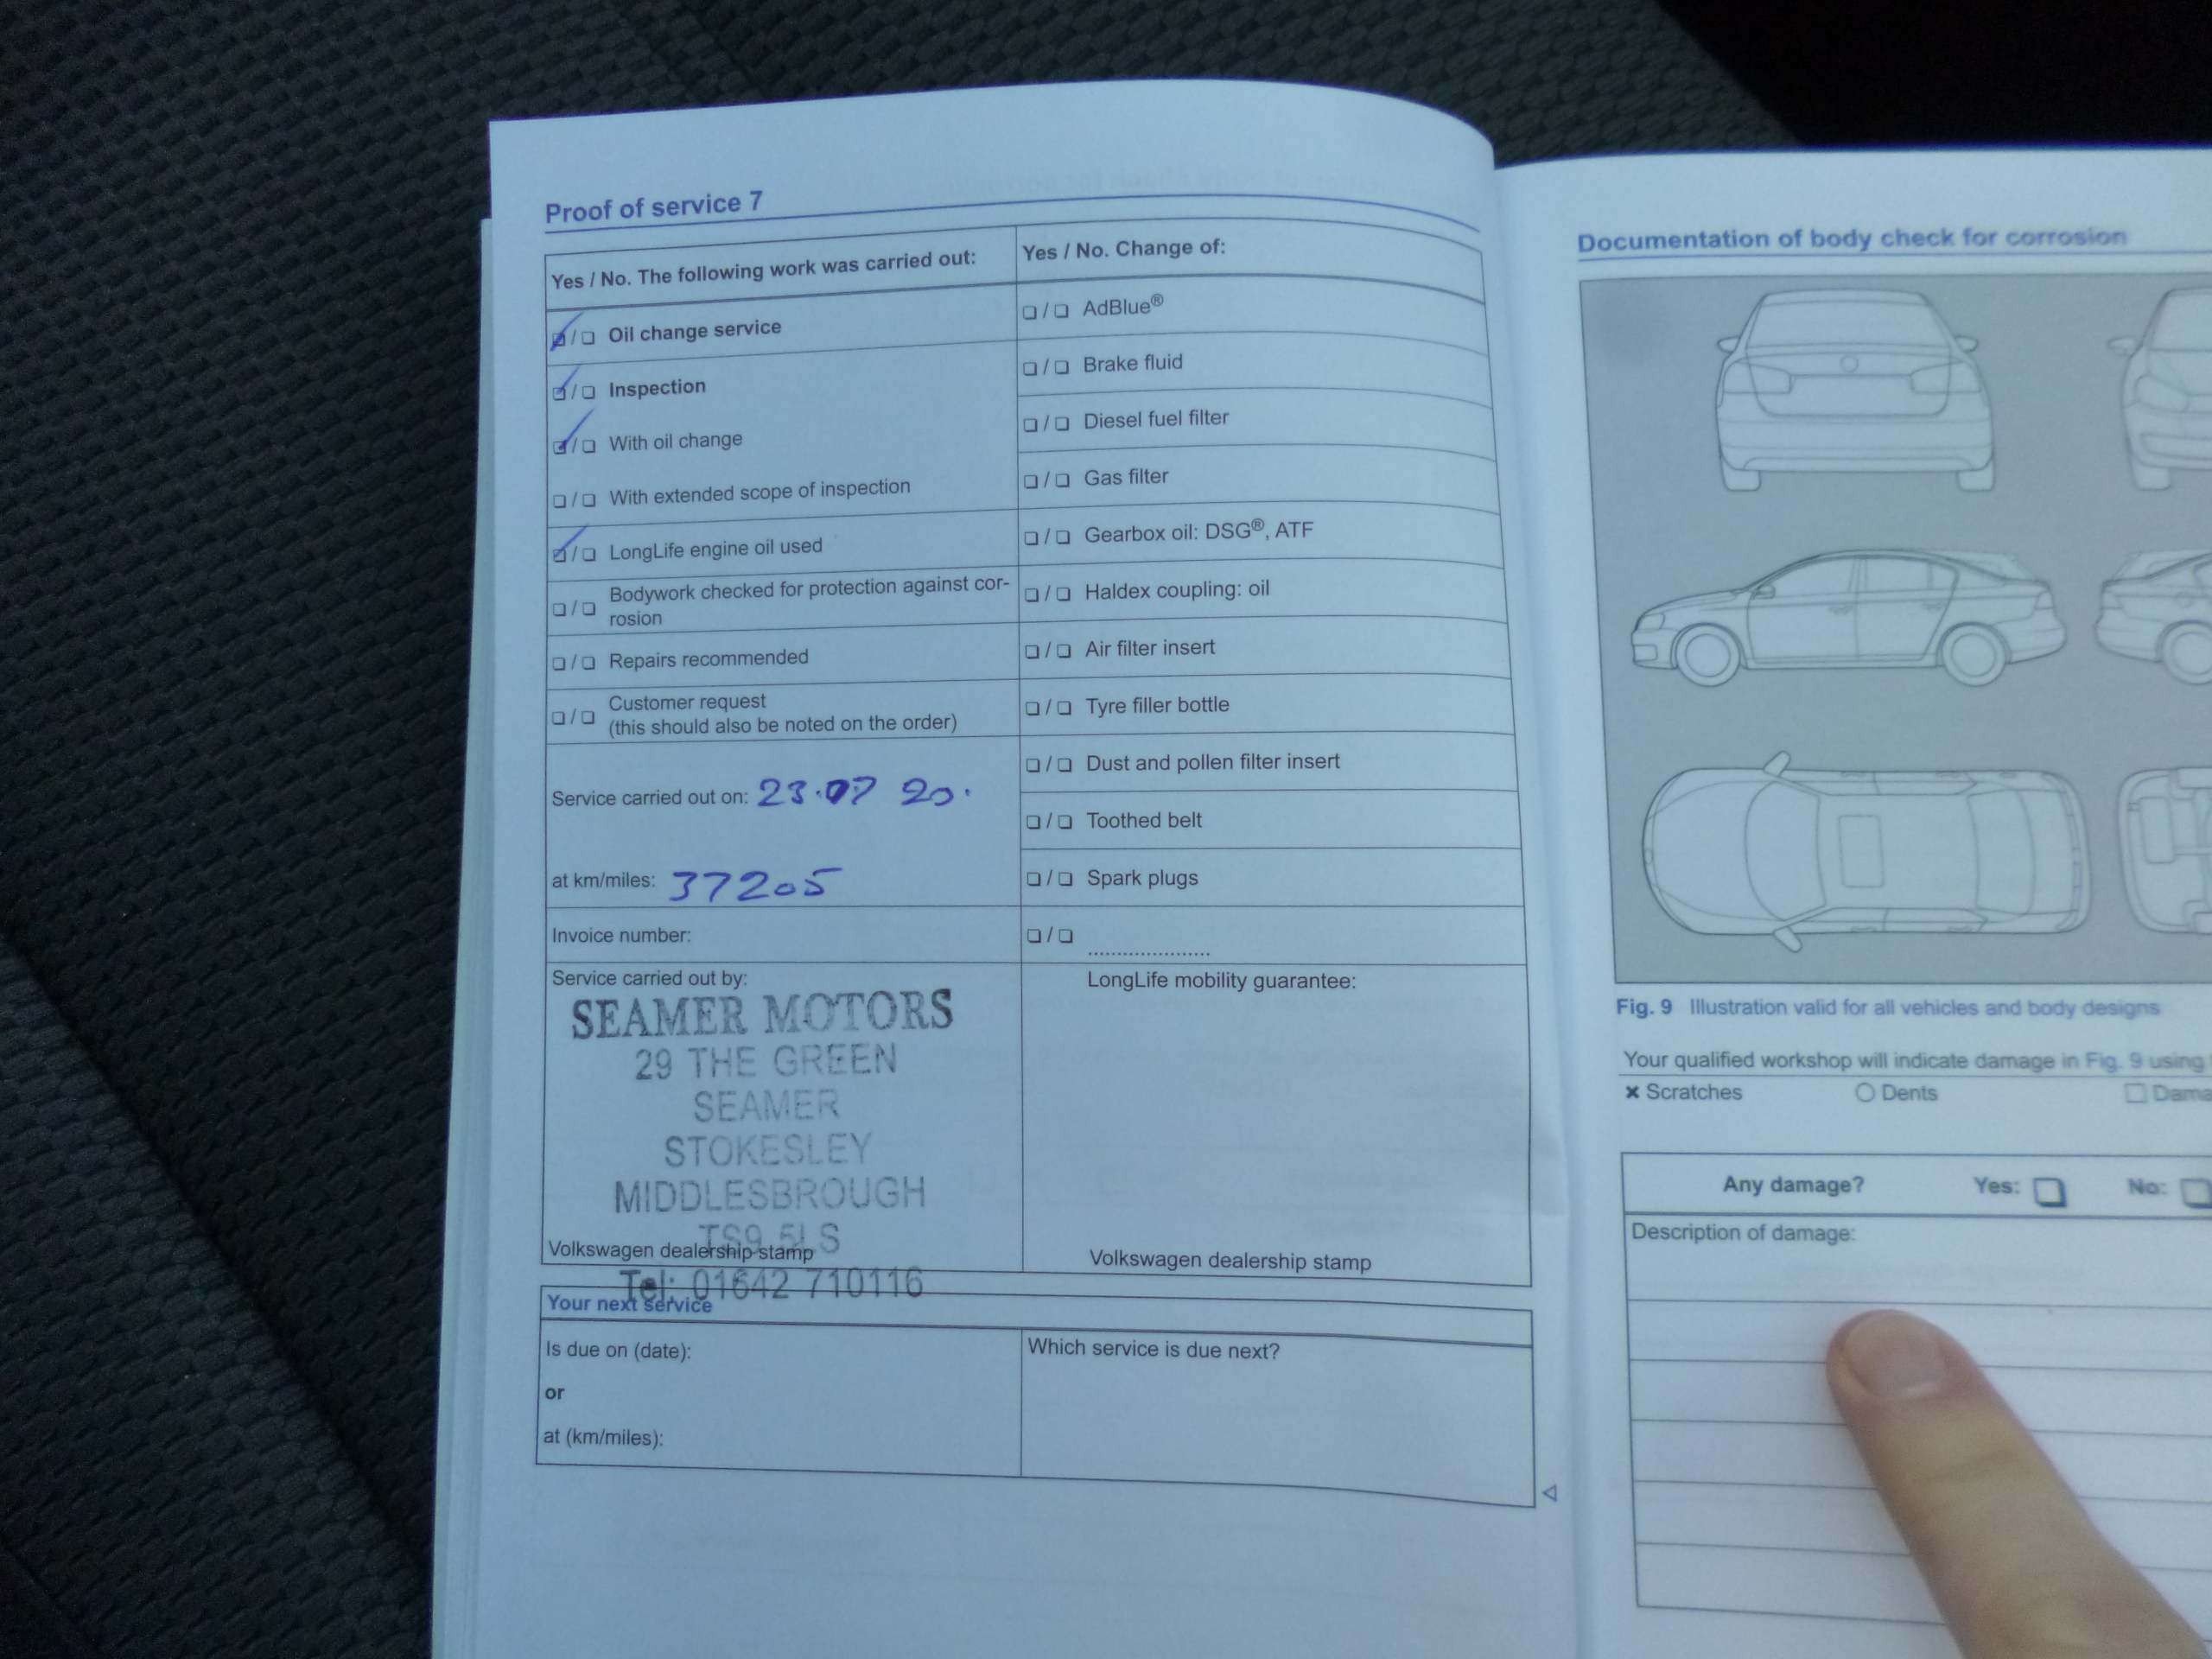 Proof of service 7
Yes / No. The following work was carried out:
❑ / ❑ Oil change service
❑ / ❑ Inspection
❑ / ❑ With oil change
❑ / ❑ With extended scope of inspection
❑ / ❑ LongLife engine oil used
❑ / ❑ Bodywork checked for protection against cor-
rosion
❑ / ❑ Repairs recommended
❑ / ❑ Customer request
(this should also be noted on the order)
Service carried out on: 23.07 20.
at km/miles: 37205
Invoice number:
Service carried out by:
SEAMER MOTORS
29 THE GREEN
SEAMER
STOKESLEY
MIDDLESBROUGH
TS9 5LS
Volkswagen dealership stamp
Tel: 01642 710116
Yes / No. Change of:
❑ / ❑ AdBlue®
❑ / ❑ Brake fluid
❑ / ❑ Diesel fuel filter
❑ / ❑ Gas filter
❑ / ❑ Gearbox oil: DSG®, ATF
❑ / ❑ Haldex coupling: oil
❑ / ❑ Air filter insert
❑ / ❑ Tyre filler bottle
❑ / ❑ Dust and pollen filter insert
❑ / ❑ Toothed belt
❑ / ❑ Spark plugs
❑ / ❑ .....................
LongLife mobility guarantee:
Volkswagen dealership stamp
Your next service
Is due on (date):
or
at (km/miles):
Which service is due next?
Documentation of body check for corrosion
Fig. 9 Illustration valid for all vehicles and body designs
Your qualified workshop will indicate damage in Fig. 9 using
× Scratches ○ Dents ❑
Any damage? Yes: ❑ No: ❑
Description of damage: